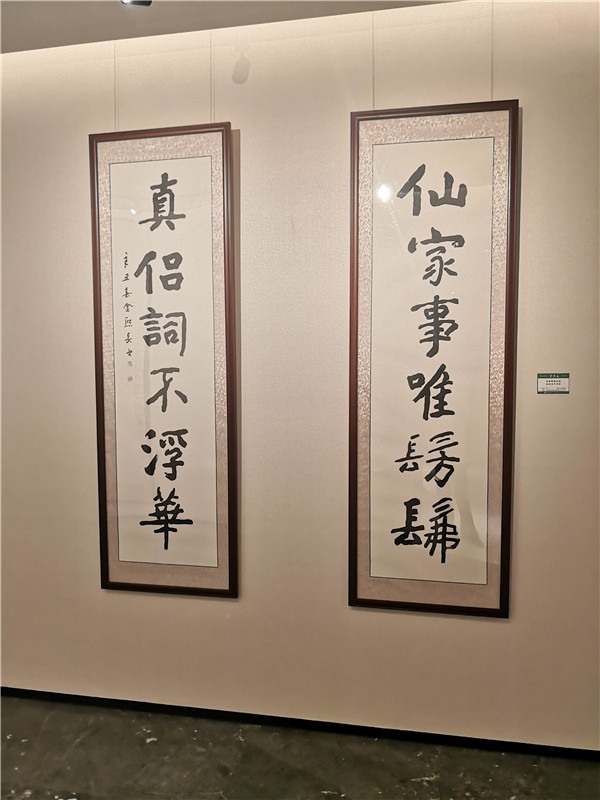 仙家事唯髣髴
真侣詞不浮華